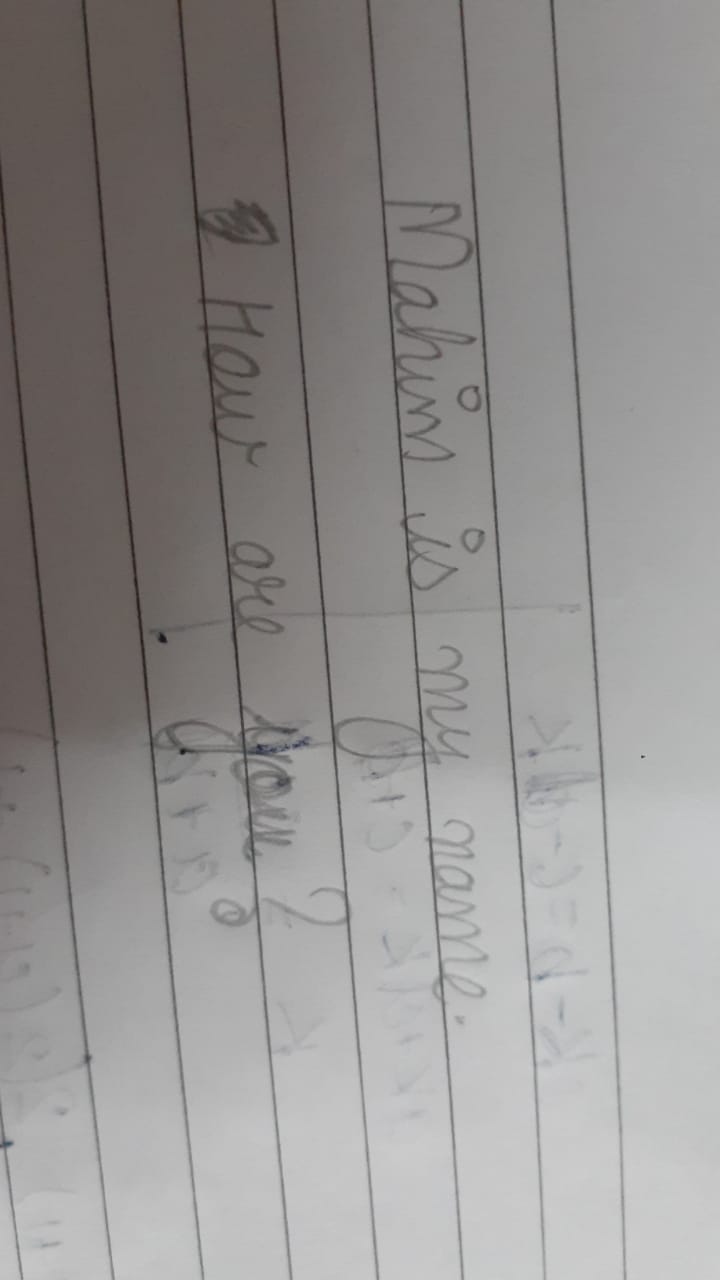 Mahim is my name.
How are you?